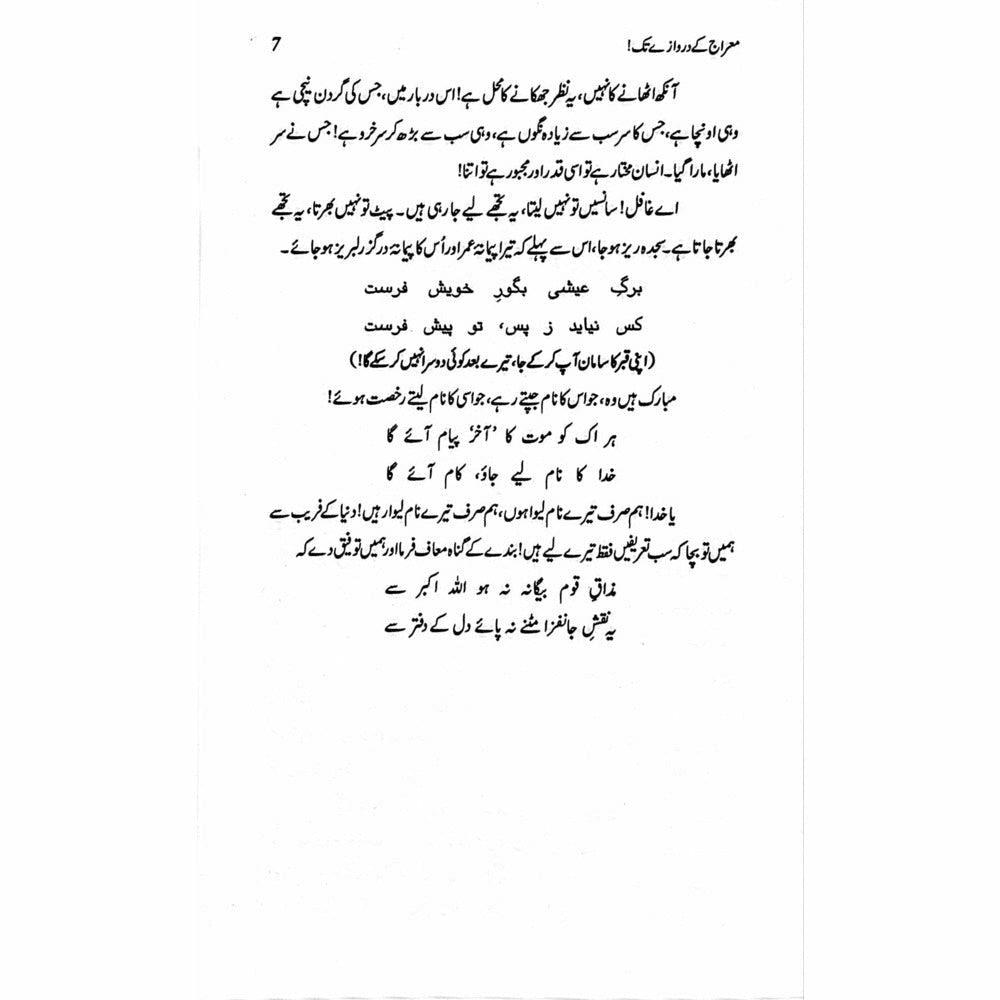 معراج کے دروازے تک! 7
آنکھ اٹھانے کا نہیں، یہ نظر جھکانے کا محل ہے! اس دربار میں، جس کی گردن نیچی ہے
وہی اونچا ہے، جس کا سر سب سے زیادہ نگوں ہے، وہی سب سے بڑھ کر سرخرو ہے! جس نے سر
اٹھایا، مارا گیا۔ انسان مختار ہے تو اسی قدر اور مجبور ہے تو اتنا!
اے غافل! سانسیں تو نہیں لیتا، یہ تجھے لیے جا رہی ہیں۔ پیٹ تو نہیں بھرتا، یہ تجھے
بھرتا جاتا ہے۔ سجدہ ریز ہو جا، اس سے پہلے کہ تیرا پیمانۂ عمر اور اُس کا پیمانۂ درگزر لبریز ہو جائے۔
برگِ عیشی بگورِ خویش فرست
کس نیاید ز پس، تو پیش فرست
(اپنی قبر کا سامان آپ کر کے جا، تیرے بعد کوئی دوسرا نہیں کر سکے گا!)
مبارک ہیں وہ، جو اس کا نام جپتے رہے، جو اسی کا نام لیتے رخصت ہوئے!
ہر اک کو موت کا ’آخر‘ پیام آئے گا
خدا کا نام لیے جاؤ، کام آئے گا
یا خدا! ہم صرف تیرے نام لیوا ہوں، ہم صرف تیرے نام لیوا رہیں! دنیا کے فریب سے
ہمیں تو بچا کہ سب تعریفیں فقط تیرے لیے ہیں! بندے کے گناہ معاف فرما اور ہمیں توفیق دے کہ
مذاقِ قوم بیگانہ نہ ہو اللہ اکبر سے
یہ نقشِ جانفزا مٹنے نہ پائے دل کے دفتر سے